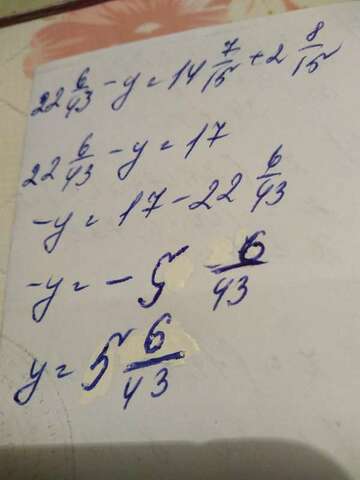 22 6/43 - y = 14 7/15 + 2 8/15
22 6/43 - y = 17
-y = 17 - 22 6/43
-y = - 5 6/43
y = 5 6/43